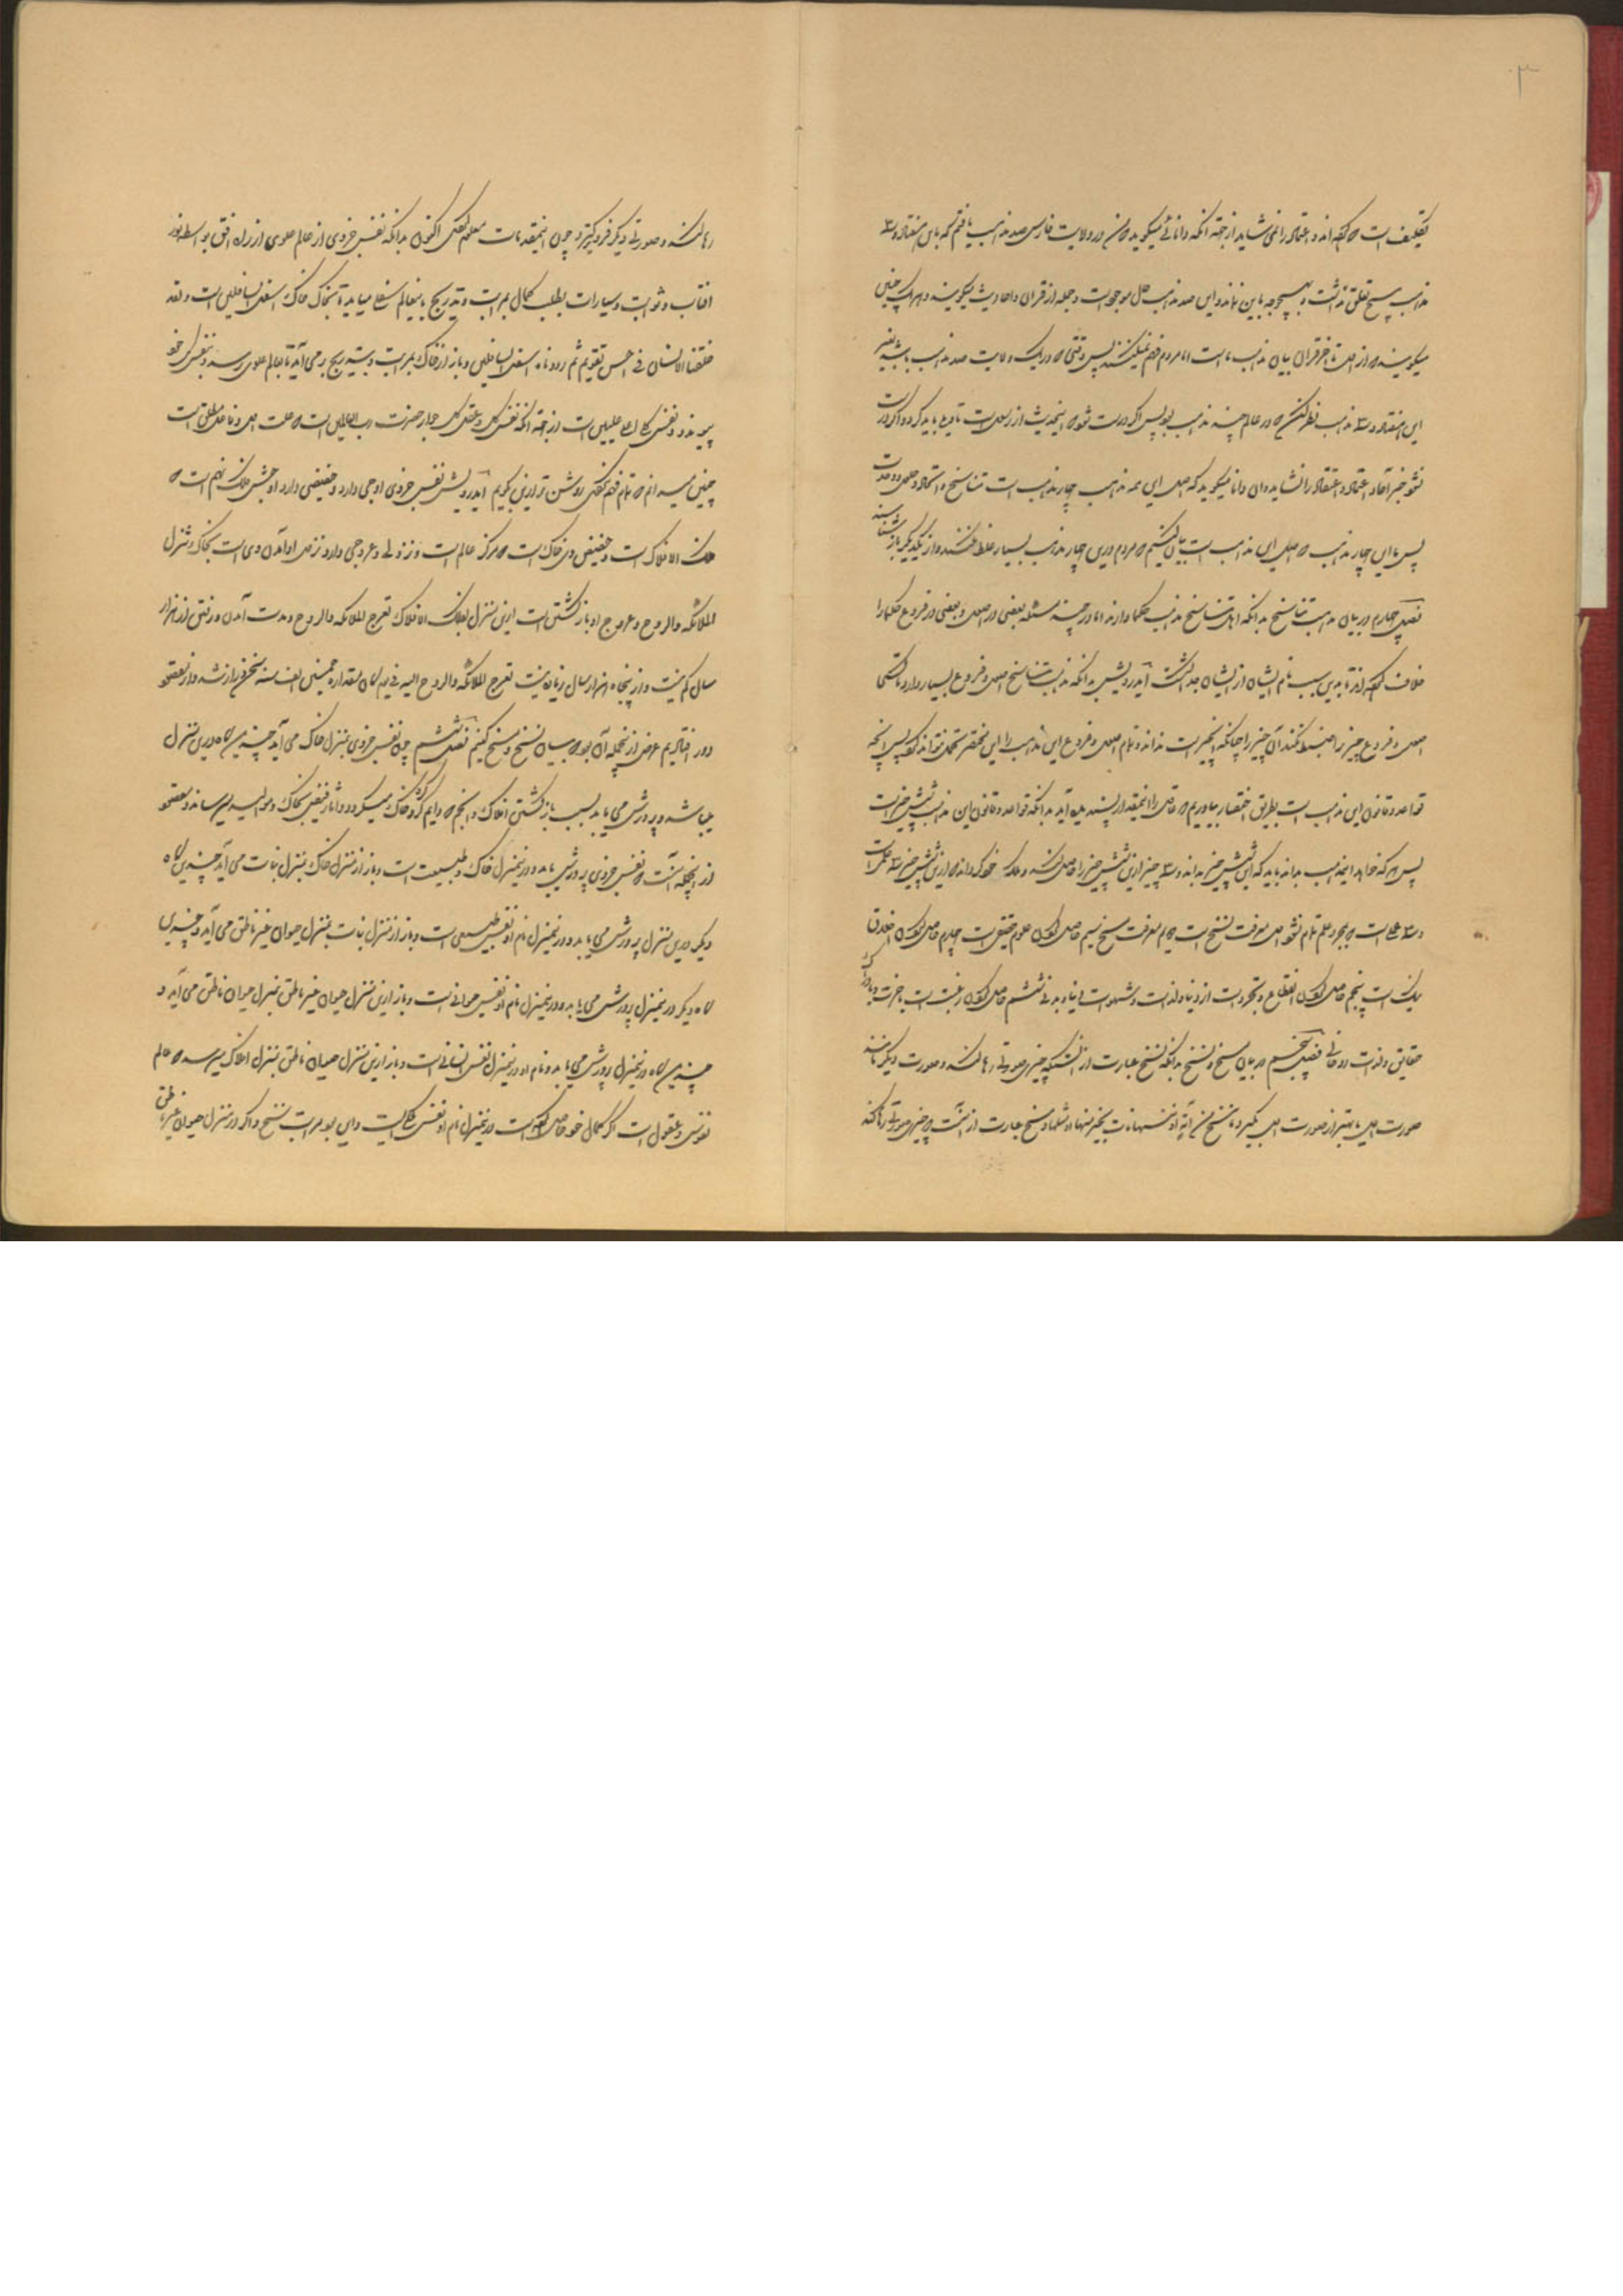 ۳
تکلیف است که گفته‌اند و اعتماد را نمی‌شاید از جهة آنکه دانائی میگوید که من در ولایت فارس صد مذهب یافتم که باین هفتاد و سه
مذهب هیچ تعلق نداشت و بهیچ وجه باین نماند و این صد مذهب حال موجود است و جمله از قران و احادیث میگویند و هر یک چنین
میگویند که از اول تا آخر قران بیان مذهب ما است اما مردم فهم نمیکنند پس وقتی که در یک ولایت صد مذهب باشد بغیر
این هفتاد و سه مذهب نظر کن که در عالم چند مذهب بود پس اگر درست شود که اینحدیث از رسول است تاویل باید کرد و اگر درست
نشود خبر آحاد اعتماد و اعتقاد را نشاید و آن دانا میگوید که اصل این همه مذهب چهار مذهب است تناسخ و اتحاد و حلول و وحدت
پس ما این چهار مذهب که اصل این مذاهب است بیان کنیم که مردم درین چهار مذهب بسیار غلط کنند و از یکدیگر باز نشناسند
فصل چهارم در بیان مذهب تناسخ بدانکه اهل تناسخ مذهب حکما دارند اما در چند مسئله بعضی در اصول و بعضی در فروع حکما را
خلاف کرده‌اند تا بدین سبب نام ایشان از ایشان جدا گشت ایدرویش بدانکه مذهب تناسخ اصول و فروع بسیار دارد تا کسی
اصول و فروع چیز را ضبط نکند آن چیز را چنانکه آنچیز است نداند و تمام اصول و فروع این مذهب را این مختصر تحمل نتواند کرد پس آنچه
قواعد و قانون این مذهب است بطریق اختصار بیاوریم که عاقل را اینمقدار پسندیده آید بدانکه قواعد و قانون این مذهب شش چیز است
پس هر که خواهد اینمذهب بداند باید که این شش چیز بداند و سه چیز ازین شش چیز را حاصل کند و ملکه خود گرداند که ازین شش چیز سه علمی است
و سه عملی است که بمجرد علم تمام نشود اول معرفت نسخ است دویم معرفت مسخ سیم حاصل کردن علوم حقیقی است چهارم حاصل کردن اخلاق
نیک است پنجم حاصل کردن انقطاع و تجرد است از دنیا و لذات و شهوات دنیاوی و بدنی ششم حاصل کردن رغبت است بآخرت و بادراک
حقایق و لذات روحانی فصل پنجم در بیان مسخ و نسخ بدانکه نسخ عبارت از آنستکه چیزی صورتی رها کند و صورت دیگر مانند
صورت اول یا بهتر از صورت اول بگیرد ما ننسخ من آیة او ننسها نات بخیر منها او مثلها و مسخ عبارت از آنست که چیزی صورتی رها کند
رها کند و صورتی دیگر فروتر گیرد چون اینمقدمات معلوم کردی اکنون بدانکه نفس جزوی از عالم علوی از راه افق بواسطه نور
افتاب و ثوابت و سیارات بطلب کمال بمراتب و تدریج باینعالم سفلی میاید تا بخاک و خاک اسفل السافلین است و لقد
خلقنا الانسان فی احسن تقویم ثم رددناه اسفل السافلین و باز از خاک بمراتب و بتدریج بر می‌آید تا بعالم علوی رسد و بنفس کل خود
پیوندد و نفس کل اعلا علیین است از جهة آنکه نفس کل و عقل کل جوار حضرت رب العالمین است که علت اول و فاعل مطلق است
چنین میدانم که تمام فهم نکردی روشن تر ازین بگویم ایدرویش نفس جزوی اوجی دارد و حضیضی دارد اوجش فلک نهم است که
فلک الافلاک است و حضیض وی خاک است که مرکز عالم است و نزولی و عروجی دارد نزول او آمدن وی است بخاک و تنزل
الملائکه و الروح و عروج او بازگشتن است ازین منزل بفلک الافلاک تعرج الملائکه و الروح و مدت آمدن و رفتن از هزار
سال کم نیست و از پنجاه هزار سال زیاده نیست تعرج الملائکه و الروح الیه فی یوم کان مقداره خمسین الف سنه سخن دراز شد و از مقصود
دور افتادیم غرض از اینجمله آن بود که بیان نسخ و مسخ کنیم فصل ششم چون نفس جزوی بمنزل خاک می آید چندین گاه درین منزل
میباشد و پرورش می‌یابد بسبب بازگشتن افلاک و انجم که دایم گرد خاک میگردد و آثار فیض بخاک و موالید میرساند و مقصود
از اینجمله آنست که نفس جزوی پرورش یابد و درینمنزل خاک و طبیعت است و باز از منزل خاک بمنزل نبات می آید چندین گاه
دیگر درین منزل پرورش می‌یابد و درینمنزل نام او نفس طبیعی است و باز از منزل نبات بمنزل حیوان غیر ناطق می آید و چندین
گاه دیگر درینمنزل پرورش می‌یابد و درینمنزل نام او نفس حیوانی است و باز ازین منزل حیوان غیر ناطق بمنزل حیوان ناطق می آید و
چندین گاه درینمنزل پرورش می‌یابد و نام او درینمنزل نفس انسانی است و باز ازین منزل حیوان ناطق بمنزل افلاک میرسد که عالم
نفوس و عقول است اگر کمال خود حاصل کرده است درینمنزل نام او نفس فلکی است و این بود مراتب نسخ و اگر در منزل حیوان غیر ناطق